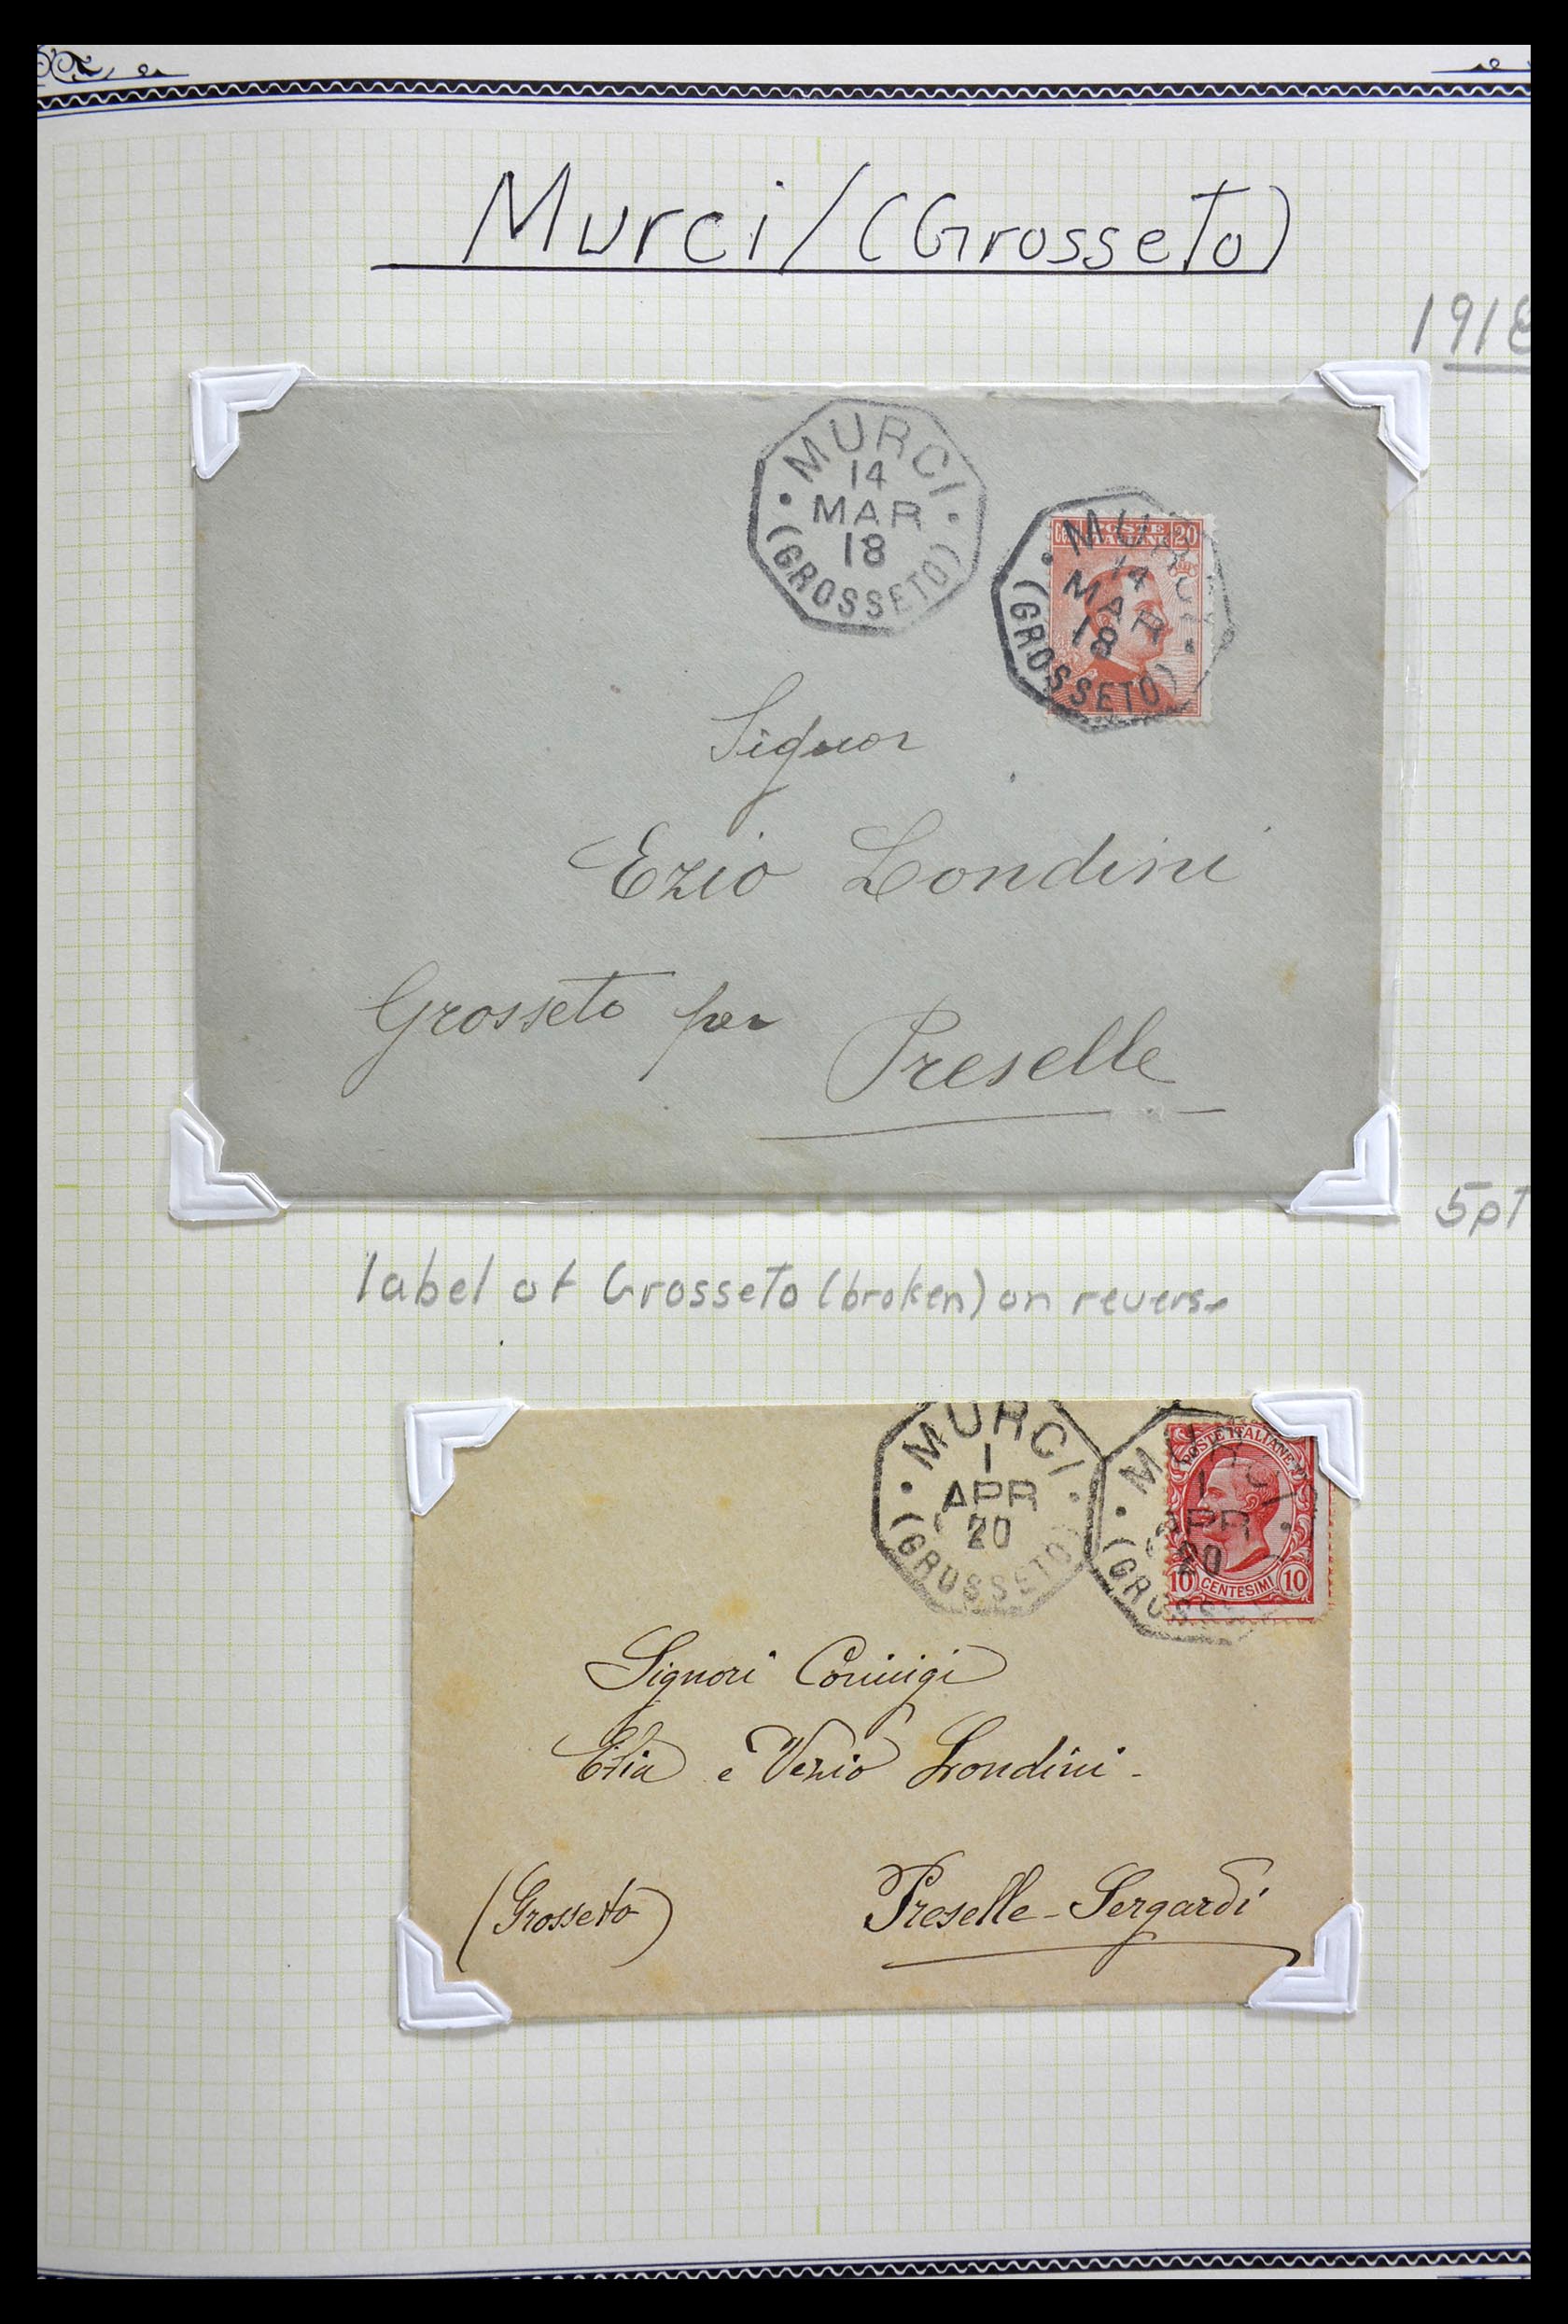 Murci/(Grosseto)
1918
MURCI
14
MAR
18
(GROSSETO)
POSTE
ITALIANE
20
MURCI
14
MAR
18
(GROSSETO)
Signor
Ezio Londini
Grosseto per
Preselle
5pt
label of Grosseto (broken) on reverse
MURCI
1
APR
20
(GROSSETO)
MURCI
1
APR
20
POSTE ITALIANE
10 CENTESIMI 10
Signori Coniugi
e Vezio Londini.
(Grosseto)
Preselle-Sergardi